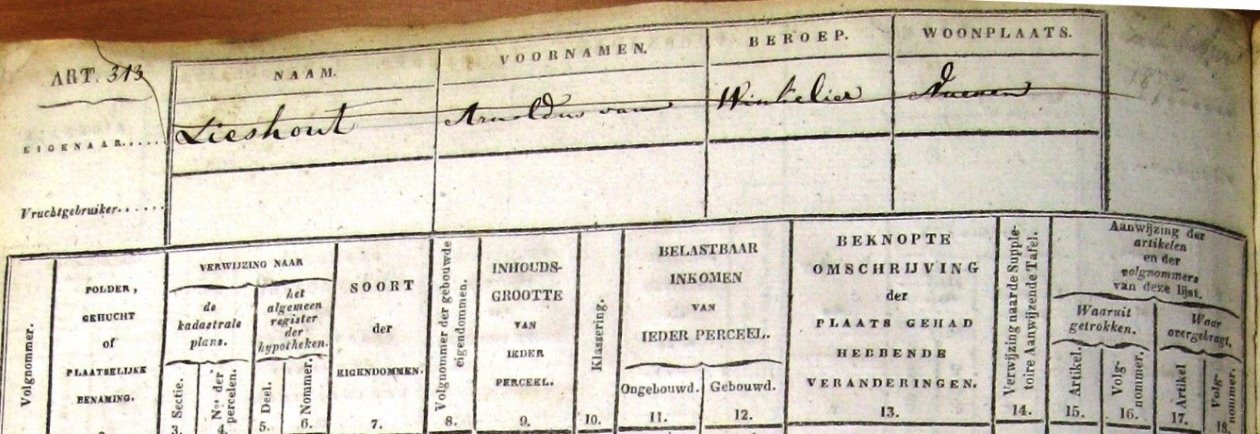 ART. 313
NAAM. VOORNAMEN. BEROEP. WOONPLAATS.
EIGENAAR..... Lieshout Arnoldus van Winkelier Nuenen
Vruchtgebruiker......
Volgnommer.
POLDER,
GEHUCHT
of
PLAATSELIJKE
BENAMING.
VERWIJZING NAAR
de
kadastrale
plans.
Sectie.
3.
Nos. der
percelen.
4.
het
algemeen
register
der
hypotheken.
Deel.
5.
Nommer.
6.
SOORT
der
EIGENDOMMEN.
7.
Volgnommer der gebouwde
eigendommen.
8.
INHOUDS-
GROOTTE
VAN
IEDER
PERCEEL.
9.
Klassering.
10.
BELASTBAAR
INKOMEN
VAN
IEDER PERCEEL.
Ongebouwd.
11.
Gebouwd.
12.
BEKNOPTE
OMSCHRIJVING
der
PLAATS GEHAD
HEBBENDE
VERANDERINGEN.
13.
Verwijzing naar de Supple-
toire Aanwijzende Tafel.
14.
Aanwijzing der
artikelen
en der
volgnommers
van deze lijst.
Waaruit
getrokken.
Artikel.
15.
Volg-
nommer.
16.
Waar
overgebragt.
Artikel
17.
Volg-
nommer.
18.